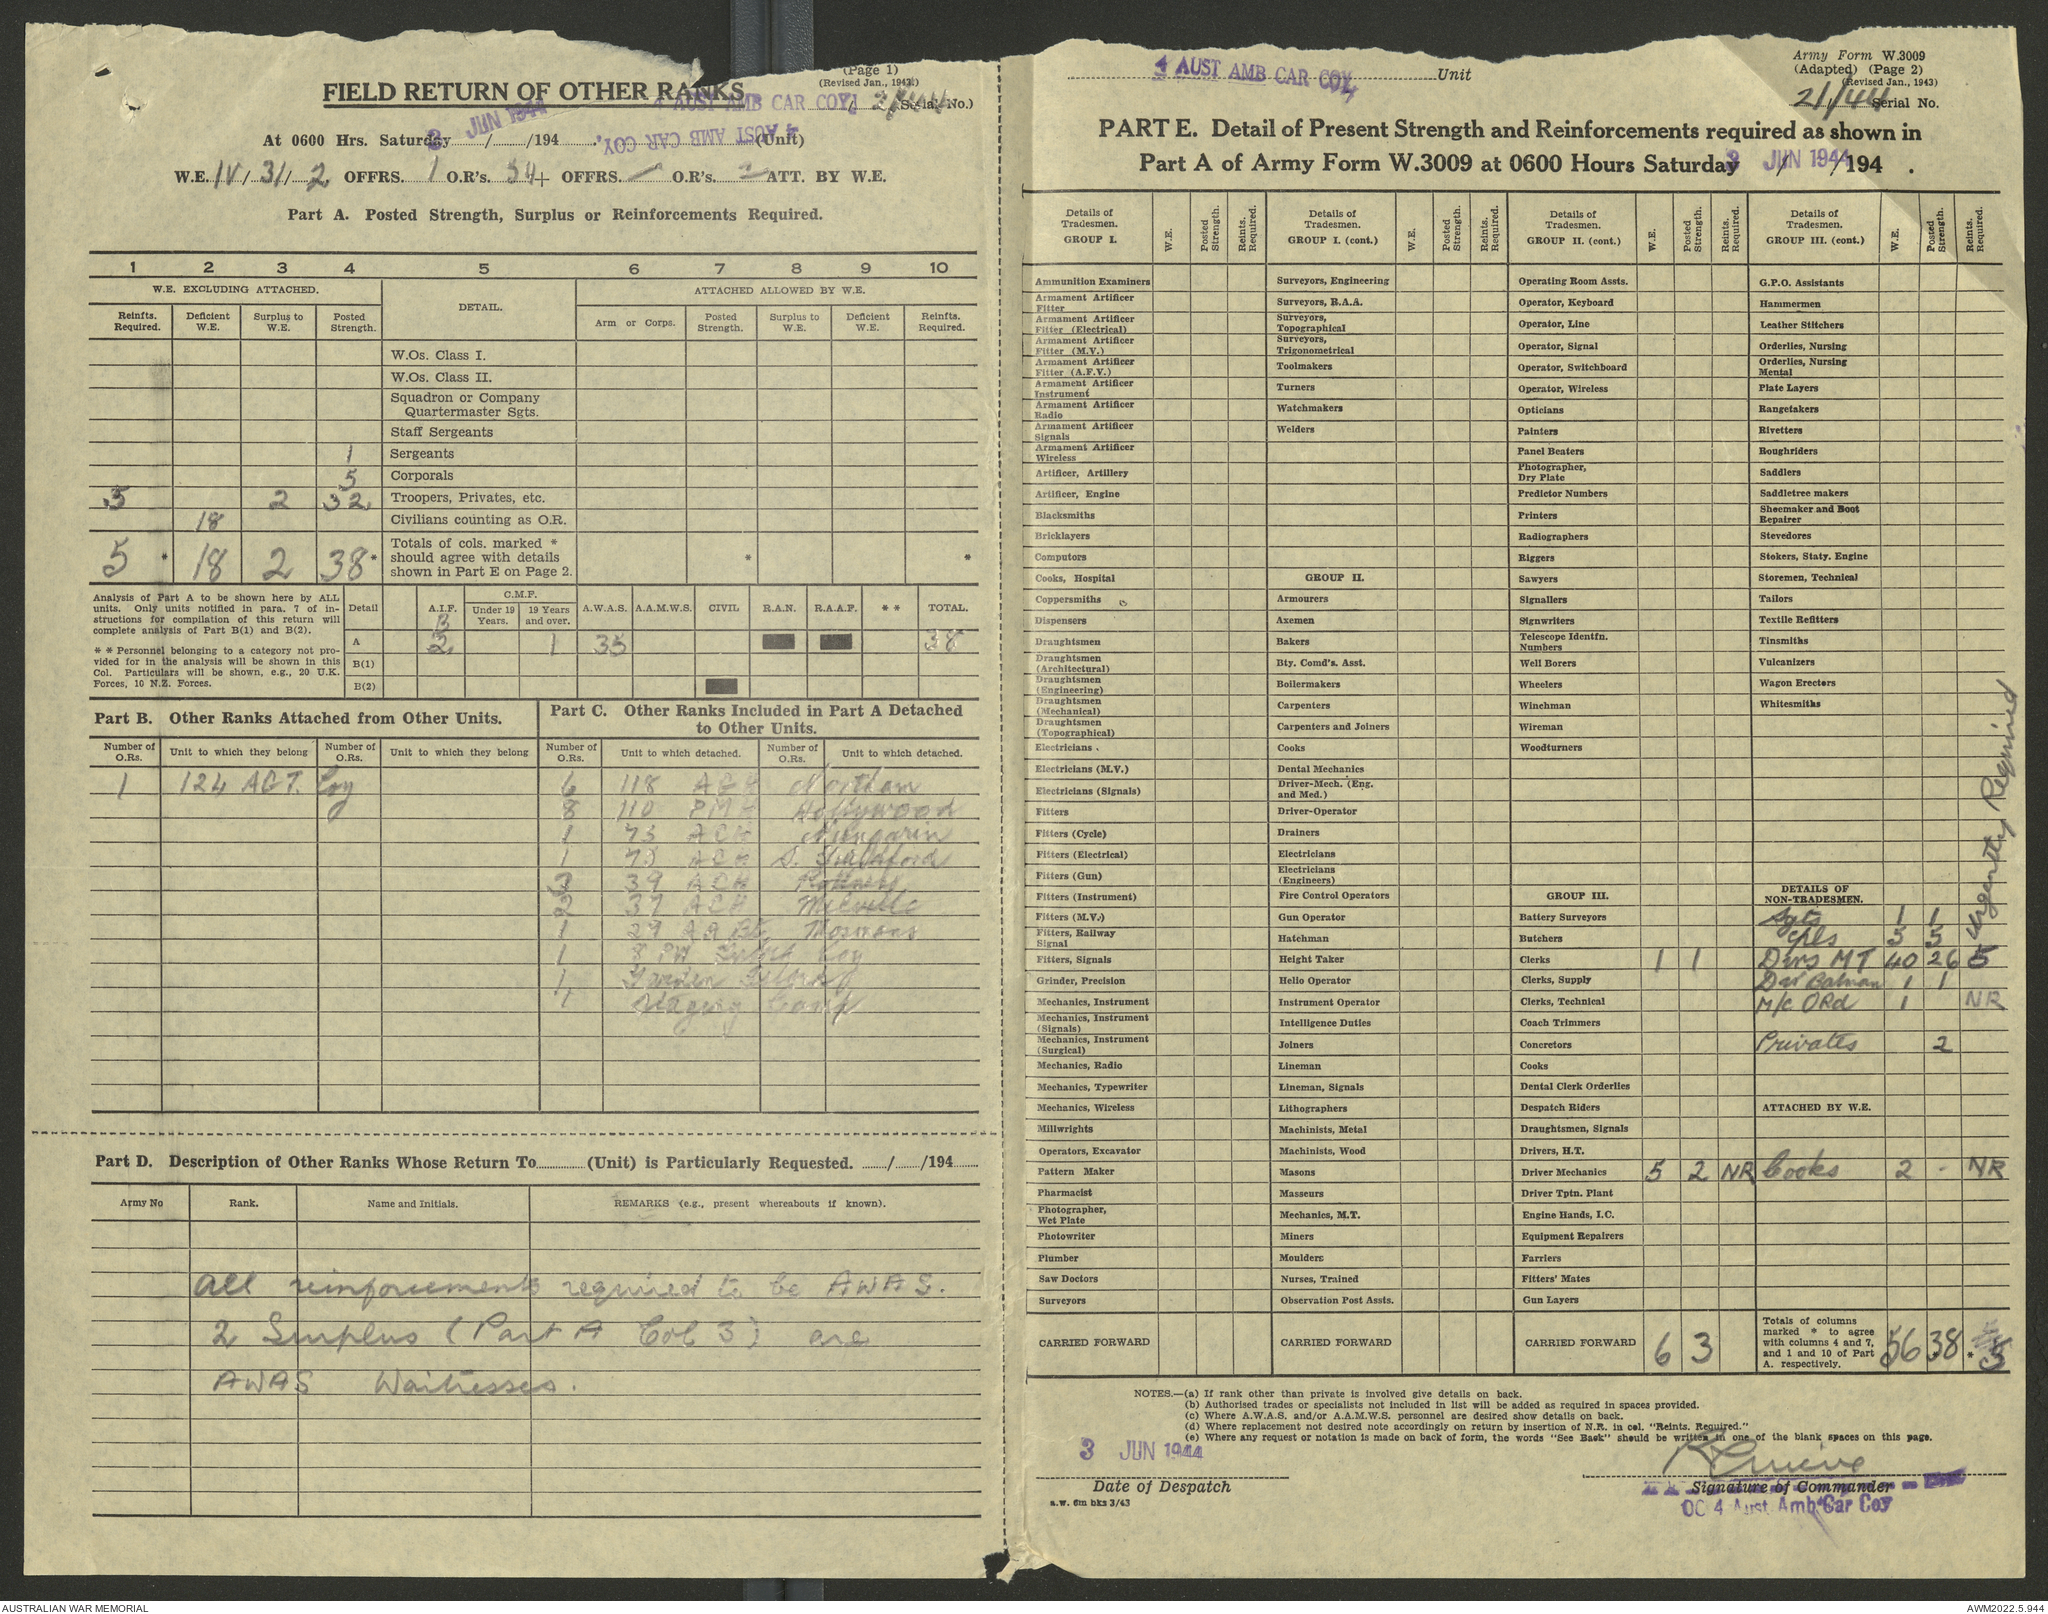 (Page 1)
(Revised Jan., 1943.)
FIELD RETURN OF OTHER RANKS
4 AUST AMB CAR COY / 21/44 (Serial No.)
At 0600 Hrs. Saturday 3 JUN 1944 / /194 . 4 AUST AMB CAR COY, (Unit)
W.E. IV / 31 / 2 OFFRS. 1 O.R's. 54 + OFFRS. — O.R's. 2 ATT. BY W.E.
Part A. Posted Strength, Surplus or Reinforcements Required.
1 2 3 4 5 6 7 8 9 10
W.E. EXCLUDING ATTACHED. DETAIL. ATTACHED ALLOWED BY W.E.
Reinfts. Required. Deficient W.E. Surplus to W.E. Posted Strength. Arm or Corps. Posted Strength. Surplus to W.E. Deficient W.E. Reinfts. Required.
W.Os. Class I.
W.Os. Class II.
Squadron or Company
Quartermaster Sgts.
Staff Sergeants
1 Sergeants
5 Corporals
5 2 32 Troopers, Privates, etc.
18 Civilians counting as O.R.
5 * 18 2 38 * Totals of cols. marked * should agree with details shown in Part E on Page 2. * *
Analysis of Part A to be shown here by ALL
units. Only units notified in para. 7 of in-
structions for compilation of this return will
complete analysis of Part B(1) and B(2).
* * Personnel belonging to a category not pro-
vided for in the analysis will be shown in this
Col. Particulars will be shown, e.g., 20 U.K.
Forces, 10 N.Z. Forces.
Detail A.I.F. C.M.F. Under 19 Years. 19 Years and over. A.W.A.S. A.A.M.W.S. CIVIL R.A.N. R.A.A.F. * * TOTAL.
B
A 2 1 35 38
B(1)
B(2)
Part B. Other Ranks Attached from Other Units.
Number of O.Rs. Unit to which they belong Number of O.Rs. Unit to which they belong
1 124 AGT. Coy
Part C. Other Ranks Included in Part A Detached
to Other Units.
Number of O.Rs. Unit to which detached. Number of O.Rs. Unit to which detached.
6 118 AGH Northam
8 110 PMH Hollywood
1 73 ACH Nungarin
1 ACH S. Guildford
3 39 ACH
2 37 ACH Melville
1 29 AA Bty Mosmans
1 8 PW Coy
1
1 Staging Camp
Part D. Description of Other Ranks Whose Return To (Unit) is Particularly Requested. / /194
Army No Rank. Name and Initials. REMARKS (e.g., present whereabouts if known).
All reinforcements required to be AWAS.
2 Surplus (Part A Col 3) are
AWAS Waitresses.
4 AUST AMB CAR COY, Unit
Army Form W.3009
(Adapted) (Page 2)
(Revised Jan., 1943)
21/44 Serial No.
PART E. Detail of Present Strength and Reinforcements required as shown in
Part A of Army Form W.3009 at 0600 Hours Saturday 3 JUN 1944 / /194 .
Details of Tradesmen. GROUP I. W.E. Posted Strength. Reints. Required.
Ammunition Examiners
Armament Artificer Fitter
Armament Artificer Fitter (Electrical)
Armament Artificer Fitter (M.V.)
Armament Artificer Fitter (A.F.V.)
Armament Artificer Instrument
Armament Artificer Radio
Armament Artificer Signals
Armament Artificer Wireless
Artificer, Artillery
Artificer, Engine
Blacksmiths
Bricklayers
Computors
Cooks, Hospital
Coppersmiths
Dispensers
Draughtsmen
Draughtsmen (Architectural)
Draughtsmen (Engineering)
Draughtsmen (Mechanical)
Draughtsmen (Topographical)
Electricians
Electricians (M.V.)
Electricians (Signals)
Fitters
Fitters (Cycle)
Fitters (Electrical)
Fitters (Gun)
Fitters (Instrument)
Fitters (M.V.)
Fitters, Railway Signal
Fitters, Signals
Grinder, Precision
Mechanics, Instrument
Mechanics, Instrument (Signals)
Mechanics, Instrument (Surgical)
Mechanics, Radio
Mechanics, Typewriter
Mechanics, Wireless
Millwrights
Operators, Excavator
Pattern Maker
Pharmacist
Photographer, Wet Plate
Photowriter
Plumber
Saw Doctors
Surveyors
CARRIED FORWARD
Details of Tradesmen. GROUP I. (cont.) W.E. Posted Strength. Reints. Required.
Surveyors, Engineering
Surveyors, R.A.A.
Surveyors, Topographical
Surveyors, Trigonometrical
Toolmakers
Turners
Watchmakers
Welders
GROUP II.
Armourers
Axemen
Bakers
Bty. Comd's. Asst.
Boilermakers
Carpenters
Carpenters and Joiners
Cooks
Dental Mechanics
Driver-Mech. (Eng. and Med.)
Driver-Operator
Drainers
Electricians
Electricians (Engineers)
Fire Control Operators
Gun Operator
Hatchman
Height Taker
Helio Operator
Instrument Operator
Intelligence Duties
Joiners
Lineman
Lineman, Signals
Lithographers
Machinists, Metal
Machinists, Wood
Masons
Masseurs
Mechanics, M.T.
Miners
Moulders
Nurses, Trained
Observation Post Assts.
CARRIED FORWARD
Details of Tradesmen. GROUP II. (cont.) W.E. Posted Strength. Reints. Required.
Operating Room Assts.
Operator, Keyboard
Operator, Line
Operator, Signal
Operator, Switchboard
Operator, Wireless
Opticians
Painters
Panel Beaters
Photographer, Dry Plate
Predictor Numbers
Printers
Radiographers
Riggers
Sawyers
Signallers
Signwriters
Telescope Identfn. Numbers
Well Borers
Wheelers
Winchman
Wireman
Woodturners
GROUP III.
Battery Surveyors
Butchers
Clerks 1 1
Clerks, Supply
Clerks, Technical
Coach Trimmers
Concretors
Cooks
Dental Clerk Orderlies
Despatch Riders
Draughtsmen, Signals
Drivers, H.T.
Driver Mechanics 5 2 NR
Driver Tptn. Plant
Engine Hands, I.C.
Equipment Repairers
Farriers
Fitters' Mates
Gun Layers
CARRIED FORWARD 6 3
Details of Tradesmen. GROUP III. (cont.) W.E. Posted Strength. Reints. Required.
G.P.O. Assistants
Hammermen
Leather Stitchers
Orderlies, Nursing
Orderlies, Nursing Mental
Plate Layers
Rangetakers
Rivetters
Roughriders
Saddlers
Saddletree makers
Shoemaker and Boot Repairer
Stevedores
Stokers, Staty. Engine
Storemen, Technical
Tailors
Textile Refitters
Tinsmiths
Vulcanizers
Wagon Erectors
Whitesmiths
DETAILS OF NON-TRADESMEN.
Sgts 1 1
Cpls 5 5
Dvrs MT 40 26 5
Urgently Required
Dvr Batman 1 1
M/c ORd 1 NR
Privates 2
ATTACHED BY W.E.
Cooks 2 - NR
Totals of columns marked * to agree with columns 4 and 7, and 1 and 10 of Part A. respectively. 56 38 * * 5
NOTES.—(a) If rank other than private is involved give details on back.
(b) Authorised trades or specialists not included in list will be added as required in spaces provided.
(c) Where A.W.A.S. and/or A.A.M.W.S. personnel are desired show details on back.
(d) Where replacement not desired note accordingly on return by insertion of N.R. in col. "Reints. Required."
(e) Where any request or notation is made on back of form, the words "See Back" should be written in one of the blank spaces on this page.
3 JUN 1944
Date of Despatch
a.w. 6m bks 3/43
Signature of Commander
OC 4 Aust Amb Car Coy
AUSTRALIAN WAR MEMORIAL
AWM2022.5.944